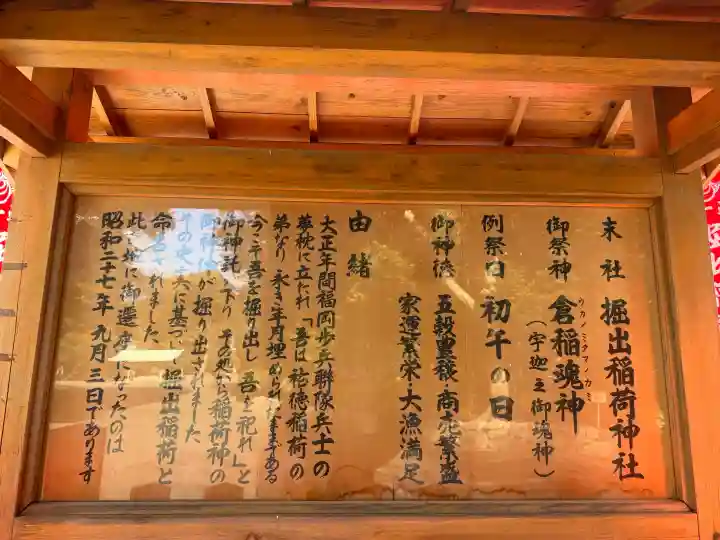 末社 掘出稲荷神社
御祭神 倉稲魂神
ウカノミタマノカミ
(宇迦之御魂神)
例祭日 初午の日
御神徳 五穀豊穣・商売繁盛
家運繁栄・大漁満足
由緒
大正年間福岡歩兵聯隊兵士の
夢枕に立たれ「吾は祐徳稲荷の
弟なり 永き年月埋められたままである
今こそ吾を掘り出し 吾を祀れ」と
御神託が下り その処から稲荷神の
御神体が掘り出されました
その史実に基づい 掘出稲荷と
命名されました
此の地に御遷座になったのは
昭和二十七年 九月三日であります